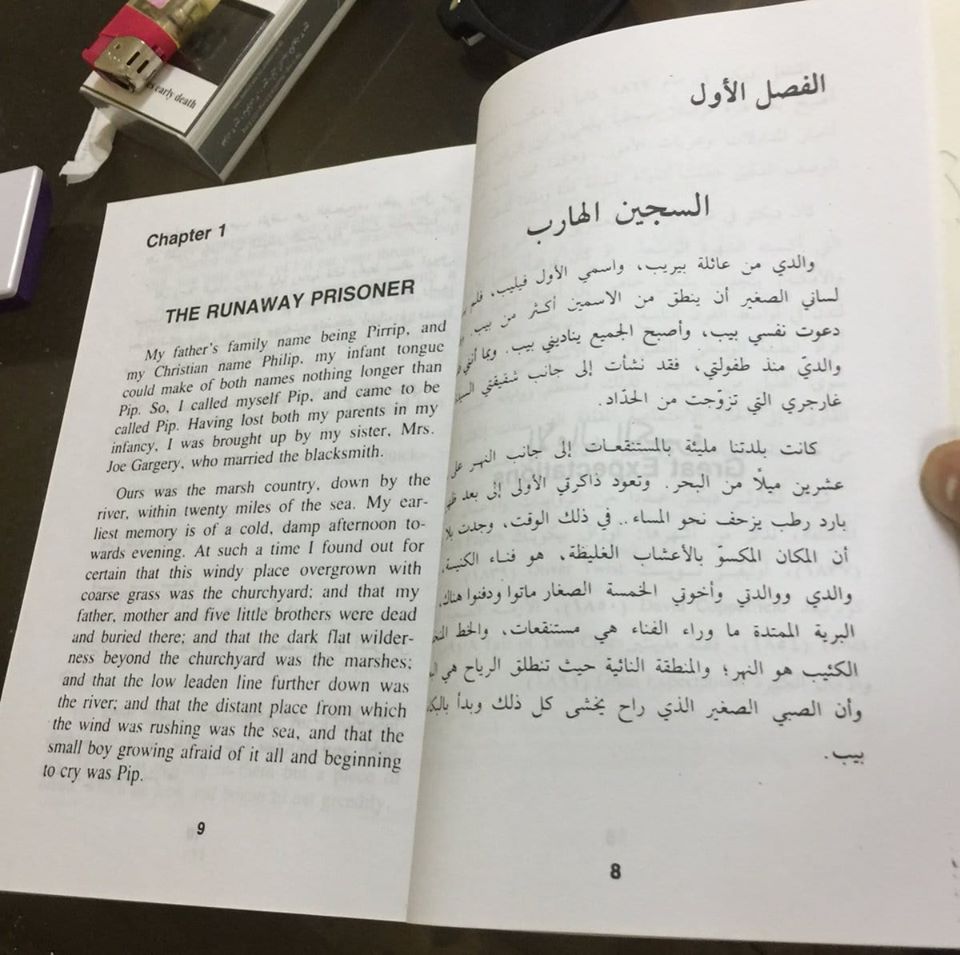 s early death
Chapter 1
THE RUNAWAY PRISONER
My father's family name being Pirrip, and
my Christian name Philip, my infant tongue
could make of both names nothing longer than
Pip. So, I called myself Pip, and came to be
called Pip. Having lost both my parents in my
infancy, I was brought up by my sister, Mrs.
Joe Gargery, who married the blacksmith.
Ours was the marsh country, down by the
river, within twenty miles of the sea. My ear-
liest memory is of a cold, damp afternoon to-
wards evening. At such a time I found out for
certain that this windy place overgrown with
coarse grass was the churchyard; and that my
father, mother and five little brothers were dead
and buried there; and that the dark flat wilder-
ness beyond the churchyard was the marshes;
and that the low leaden line further down was
the river; and that the distant place from which
the wind was rushing was the sea, and that the
small boy growing afraid of it all and beginning
to cry was Pip.
9
الفصل الأول
السجين الهارب
والدي من عائلة بيريب، واسمي الأول فيليب، فلم
لساني الصغير أن ينطق من الاسمين أكثر من بيب.
دعوت نفسي بيب، وأصبح الجميع يناديني بيب. وبما أنني
والديّ منذ طفولتي، فقد نشأت إلى جانب شقيقتي
غارجري التي تزوّجت من الحدّاد.
كانت بلدتنا مليئة بالمستنقعات إلى جانب النهر على
عشرين ميلاً من البحر. وتعود ذاكرتي الأولى إلى بعد
بارد رطب يزحف نحو المساء.. في ذلك الوقت، وجدت
أن المكان المكسوّ بالأعشاب الغليظة، هو فناء الكنيسة
والدي ووالدتي وأخوتي الخمسة الصغار ماتوا ودفنوا هناك
البرية الممتدة ما وراء الفناء هي مستنقعات، والخط
الكئيب هو النهر؛ والمنطقة النائية حيث تنطلق الرياح هي
وأن الصبي الصغير الذي راح يخشى كل ذلك وبدأ
بيب.
8